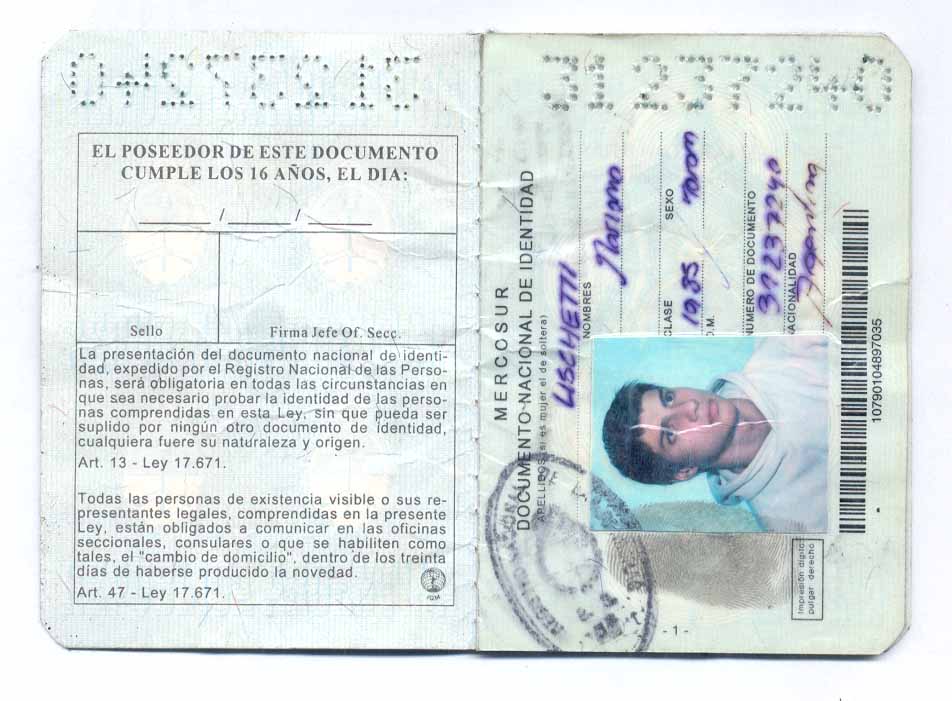 EL POSEEDOR DE ESTE DOCUMENTO
CUMPLE LOS 16 AÑOS, EL DIA:
/ /
Sello
Firma Jefe Of. Secc.
La presentación del documento nacional de identi-
dad, expedido por el Registro Nacional de las Perso-
nas, será obligatoria en todas las circunstancias en
que sea necesario probar la identidad de las perso-
nas comprendidas en esta Ley, sin que pueda ser
suplido por ningún otro documento de identidad,
cualquiera fuere su naturaleza y origen.
Art. 13 - Ley 17.671.
Todas las personas de existencia visible o sus re-
presentantes legales, comprendidas en la presente
Ley, están obligados a comunicar en las oficinas
seccionales, consulares o que se habiliten como
tales, el "cambio de domicilio", dentro de los treinta
días de haberse producido la novedad.
Art. 47 - Ley 17.671.
31237240
MERCOSUR
DOCUMENTO NACIONAL DE IDENTIDAD
APELLIDOS (si es mujer el de soltera)
LISCHETTI
NOMBRES
Mariano
CLASE SEXO
1985 Varon
D.M.
NUMERO DE DOCUMENTO
31237240
NACIONALIDAD
Argentina
10790104897035
Impresión dígito
pulgar derecho
- 1 -